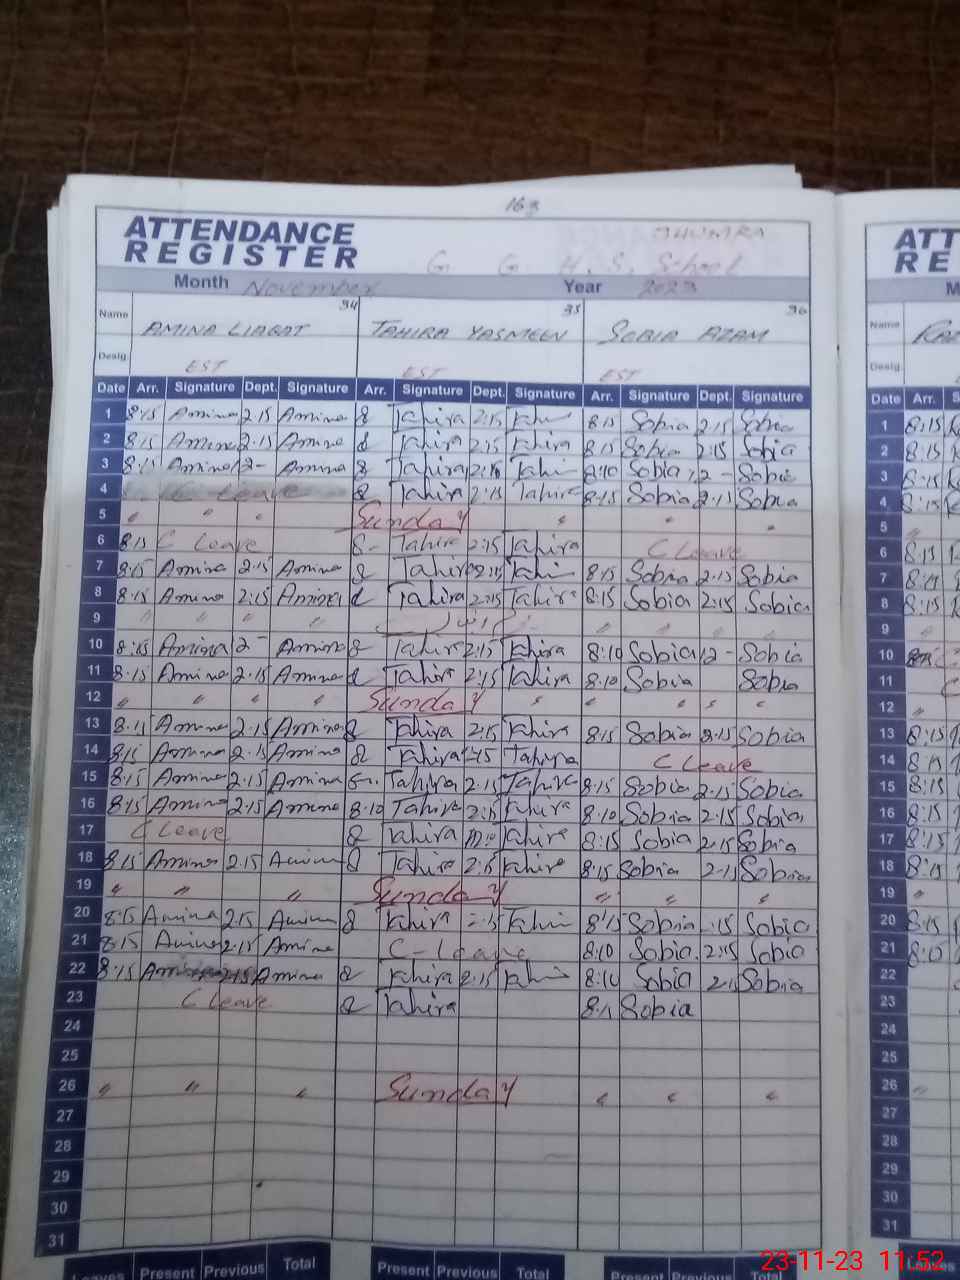 163
ATTENDANCE REGISTER
JHUMRA
G. G. H. S. School
Month November Year 2023
Name AMINA LIAQAT 34 TAHIRA YASMEEN 35 SOBIA AZAM 36
Desig. EST EST EST
Date Arr. Signature Dept. Signature Arr. Signature Dept. Signature Arr. Signature Dept. Signature
1 8:15 Amina 2:15 Amina 8 Tahira 2:15 8:15 Sobia 2:15 Sobia
2 8:15 Amina 2:15 Amina 8 Tahira 2:15 Tahira 8:15 Sobia 2:15 Sobia
3 Amina 12- Amina 8 Tahira 8:10 Sobia 12- Sobia
4 C Leave 8 Tahira 2:15 Tahira 8:10 Sobia 2:15 Sobia
5 " " " Sunday " " "
6 8:15 C Leave 8- Tahira 2:15 Tahira C Leave
7 8:15 Amina 2:15 Amina 8 Tahira 2:15 8:15 Sobia 2:15 Sobia
8 8:15 Amina 2:15 Amina 8 Tahira 2:15 Tahira 8:15 Sobia 2:15 Sobia
9 " " " " " " "
10 8:15 Amina 2- Amina 8 Tahira 2:15 Tahira 8:10 Sobia 12- Sobia
11 8:15 Amina 2:15 Amina 8 Tahira 2:15 Tahira 8:10 Sobia Sobia
12 " " " " Sunday " " " "
13 Amina 2:15 Amina 8 Tahira 2:15 Tahira 8:15 Sobia 2:15 Sobia
14 8:15 Amina 2:15 Amina 8 Tahira 2:15 Tahira C Leave
15 8:15 Amina 2:15 Amina Tahira 2:15 Tahira 8:15 Sobia 2:15 Sobia
16 8:15 Amina 2:15 Amina 8:10 Tahira 2:15 Tahira 8:10 Sobia 2:15 Sobia
17 C Leave 8 Tahira Tahira 8:15 Sobia 2:15 Sobia
18 8:15 Amina 2:15 Amina 8 Tahira 2:15 Tahira 8:15 Sobia 2:15 Sobia
19 " " " Sunday " " "
20 8:15 Amina 2:15 Amina 8 Tahira 2:15 8:15 Sobia 2:15 Sobia
21 8:15 Amina 2:15 Amina C-leave 8:10 Sobia 2:15 Sobia
22 8:15 Amina 2:15 Amina 8 Tahira 2:15 8:10 Sobia 2:15 Sobia
23 C Leave 8 Tahira Sobia
24
25
26 " " " Sunday " " "
27
28
29
30
31
Leaves Present Previous Total Present Previous Total Present Previous Total
ATT
RE
Name
Desig.
Date Arr. S
1 8:15
2 8:15
3 8:15
4 8:15
5 "
6 8:15
7
8 8:15
9 "
10
11
12 "
13 8:15
14 8:15
15 8:15
16 8:15
17 8:15
18 8:15
19 "
20 8:15
21
22
23
24
25
26 "
27
28
29
30
31
23-11-23 11:52